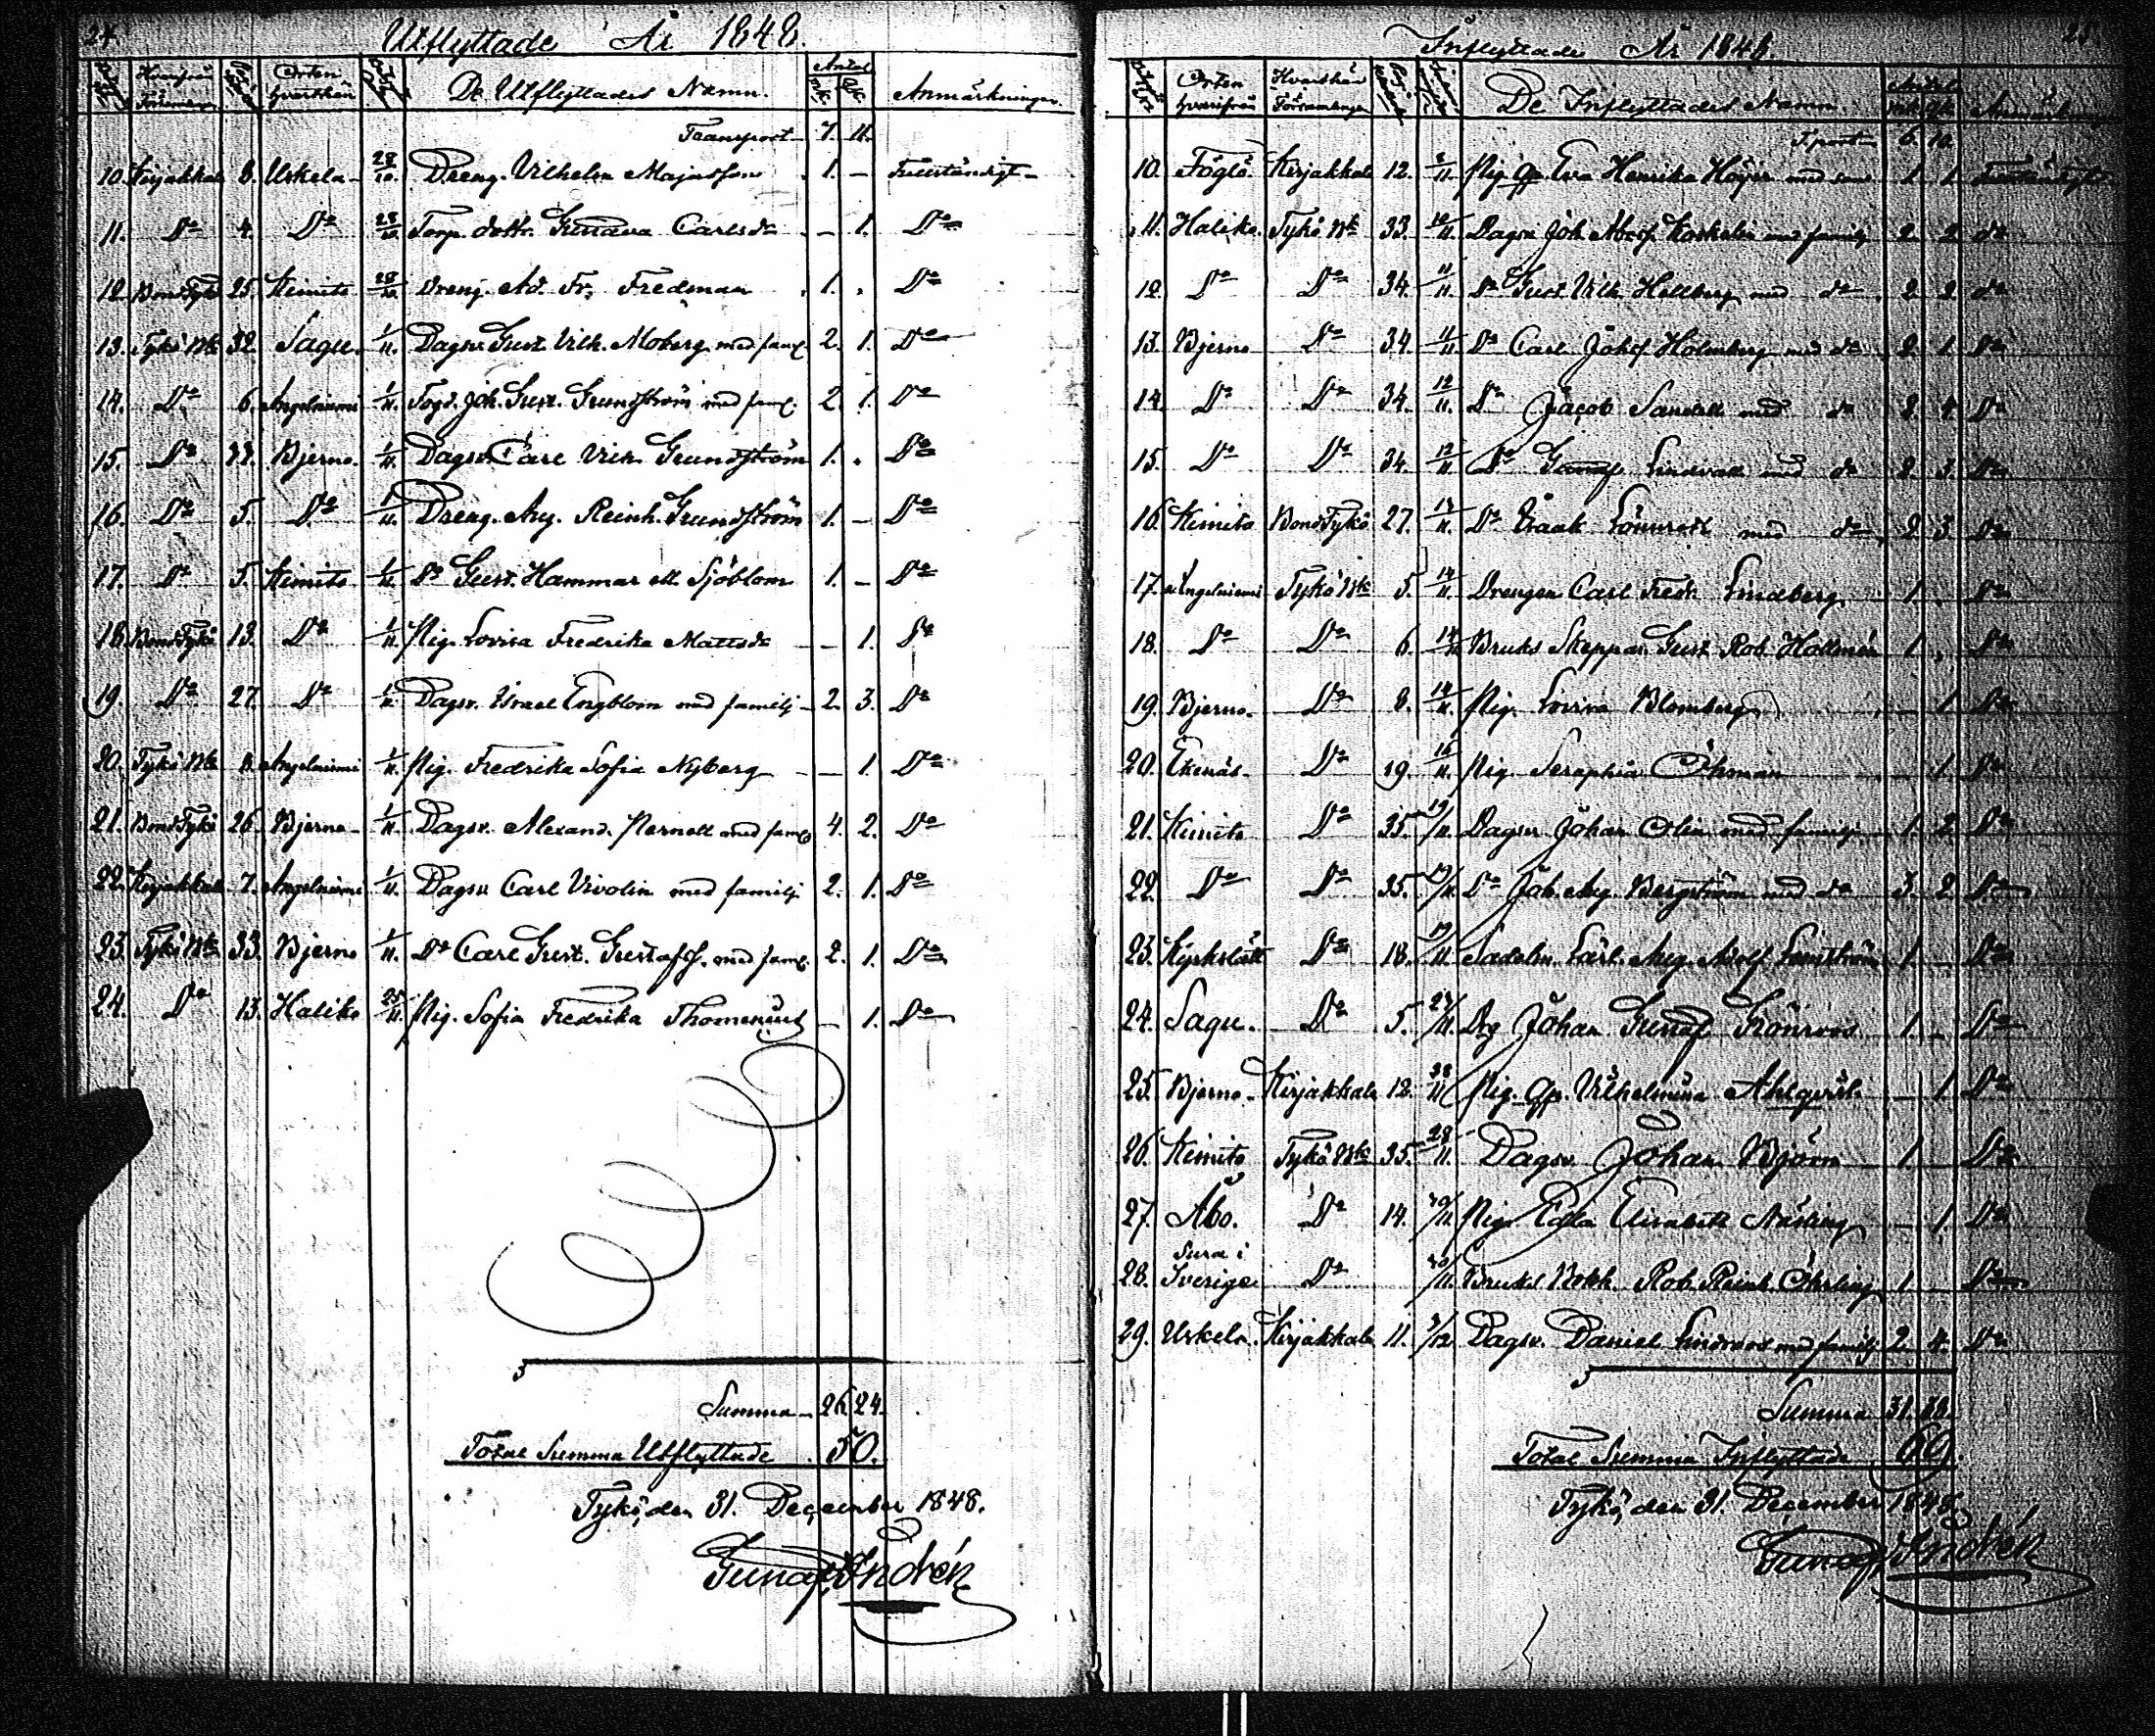 24.
Utflyttade År 1848.
Hvarifrån Orten hvarthän De Utflyttades Namn. Antal Anmärkningar
Transport 7. 11.
10. Kirjakkala 8. Uskela 28/10. Dreng. Vilhelm Majasson 1. —
11. Do 4. Do 28/10 Torp. dottr. Gustava Carlsdr — 1. Do
12. Bond Tykö 25. Kimito 28/10 Dreng. Ad. Fr. Fredman 1. . Do
13. Tykö Bk 32. Sagu. 1/11. Dagsv. Gust. Vilh. Moberg med famj. 2. 1. Do
14. Do 6. Angelniemi 1/11. Joh. Gust. Grundström med famj. 2. 1. Do
15. Do Bjerno. 1/11. Dagsv. Carl Vilh. Grundström 1. . Do
16. Do 5. Do 1/11. Dreng. Aug. Reinh. Grundström 1. — Do
17. Do 5. Kimito 1/11. Do Gust. Hammar ell. Sjöblom 1. — Do
18. Bond Tykö 13. Do 1/11. Pig. Lovisa Fredrika Mattsdr — 1. Do
19. Do 27. Do 1/11. Dagsv. Israel Engblom med familj 2. 3. Do
20. Tykö Bk 8. Angelniemi 1/11. Pig. Fredrika Sofia Nyberg — 1. Do
21. Bond Tykö 26. Bjerno 1/11. Dagsv. Alexand. Pernell med famj 4. 2. Do
22. Kirjakkala 7. Angelniemi 1/11. Dagsv Carl Vivolin med familj 2. 1. Do
23. Tykö Bk 33. Bjerno 1/11. Do Carl Gust. Gustafss. med famj. 2. 1. Do
24. Do 13. Haliko 25/11. Pig. Sofia Fredrika Thomenius — 1. Do
Summa 26. 24.
Total Summa Utflyttade 50.
Tykö, den 31. December 1848.
Gustaf Indrén
25.
Inflyttade År 1848.
Orten hvarifrån Hvarthän Församlingen De Inflyttades Namn. Antal Anmärkningar
T.port 6. 10.
10. Föglö. Kirjakkala 12. Pig. Eva Henrika Höijer med son 1. 1.
11. Haliko. Tykö Bk 33. Dagsv Joh. Koskelin med familj 2. 2. do
12. Do Do 34. 11/11. Do Gust. Vilh. Hellberg med do 2. 2. do
13. Bjerno Do 34. 11/11 Do Carl Johs. Holmberg med do 2. 1. Do
14. Do Do 34. 12/11. Do Jacob Sandell med do 2. 4. Do
15. Do Do 34. 12/11 Do Gustaf Lindvall med do 2. 3. Do
16. Kimito Bond Tykö 27. Do Isaak Lönnroth med do 2. 3. Do
17. Angelniemi Tykö Bk 5. 14/11. Drengen Carl Fredr. Lindberg 1. . Do
18. Do Do 6. 14/11 Bruks Skeppar. Gust. Rob. Hollmén 1. . Do
19. Bjerno. Do 8. 14/11. Pig. Lovisa Blomberg — 1. Do
20. Ekenäs. Do 19. 16/11. Pig. Seraphia Öhman 1. Do
21. Kimito Do 35. 19/11. Dagsv Johan Olin med familj 1. 2. Do
22. Do Do 35. 19/11. Do Joh. Aug. Bergström med do 3. 2. Do
23. Kyrkslätt Do 18. 19/11. Sadelm. Lärl. Aug. Adolf 1. — Do
24. Sagu. Do 5. 27/11. Drg Johan Gustaf Grönroos 1. — Do
25. Bjerno. Kirjakkala 12. 28/11 Pig. Vilhelmina Ahlqvist — 1. Do
26. Kimito Tykö Bk 35. 28/11. Dagsv. Johan Björn 1. Do
27. Åbo. Do 14. 30/11. Pig. Edla Elisabeth — 1. Do
28. Sura i Sverige Do 30/11. Bruks Bokh. Rob. Reinh. Öhrling 1. Do
29. Uskela. Kirjakkala 11. Dagsv. Daniel Lindroos med familj 2. 4. Do
Summa 31. 38.
Total Summa Inflyttade 69.
Tykö, den 31. December 1848.
Gustaf Indrén